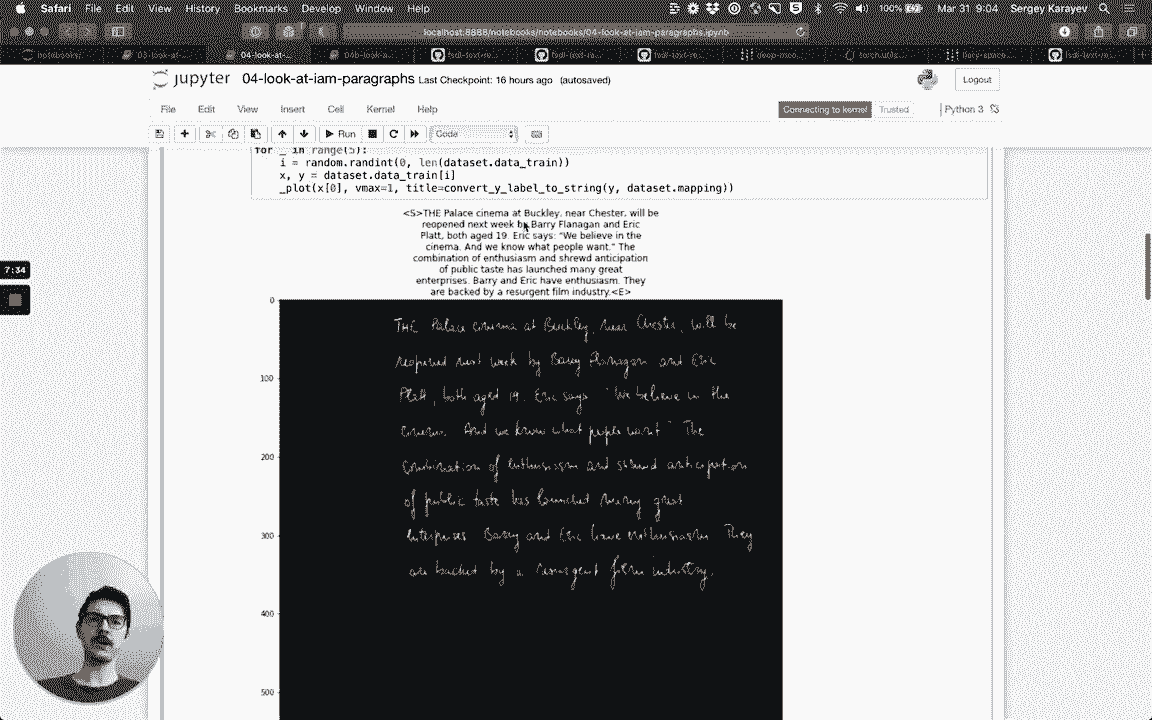 Safari File Edit View History Bookmarks Develop Window Help 100% Mar 31 9:04 Sergey Karayev
localhost:8888/notebooks/notebooks/04-look-at-iam-paragraphs.ipynb
notebooks/ 03-look-at-... 04-look-at-... 04b-look-a... fsdl-text-re... fsdl-text-re...
jupyter 04-look-at-iam-paragraphs Last Checkpoint: 16 hours ago (autosaved) Logout
File Edit View Insert Cell Kernel Help Connecting to kernel Trusted Python 3
Run Code
for _ in range(5):
i = random.randint(0, len(dataset.data_train))
x, y = dataset.data_train[i]
_plot(x[0], vmax=1, title=convert_y_label_to_string(y, dataset.mapping))
<S>THE Palace cinema at Buckley, near Chester, will be
reopened next week by Barry Flanagan and Eric
Platt, both aged 19. Eric says: "We believe in the
cinema. And we know what people want." The
combination of enthusiasm and shrewd anticipation
of public taste has launched many great
enterprises. Barry and Eric have enthusiasm. They
are backed by a resurgent film industry.<E>
0
THE Palace cinema at Buckley, near Chester, will be
reopened next week by Barry Flanagan and Eric
100
Platt, both aged 19. Eric says "We believe in the
cinema. And we know what people want" The
200
combination of enthusiasm and shrewd anticipation
of public taste has launched many great
300
enterprises Barry and Eric have enthusiasm They
are backed by a resurgent film industry.
400
500
7:34